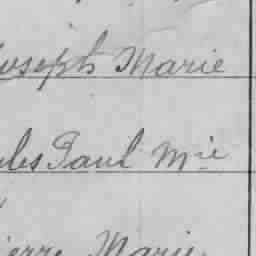 Joseph Marie
ules Paul Mie
ierre Marie